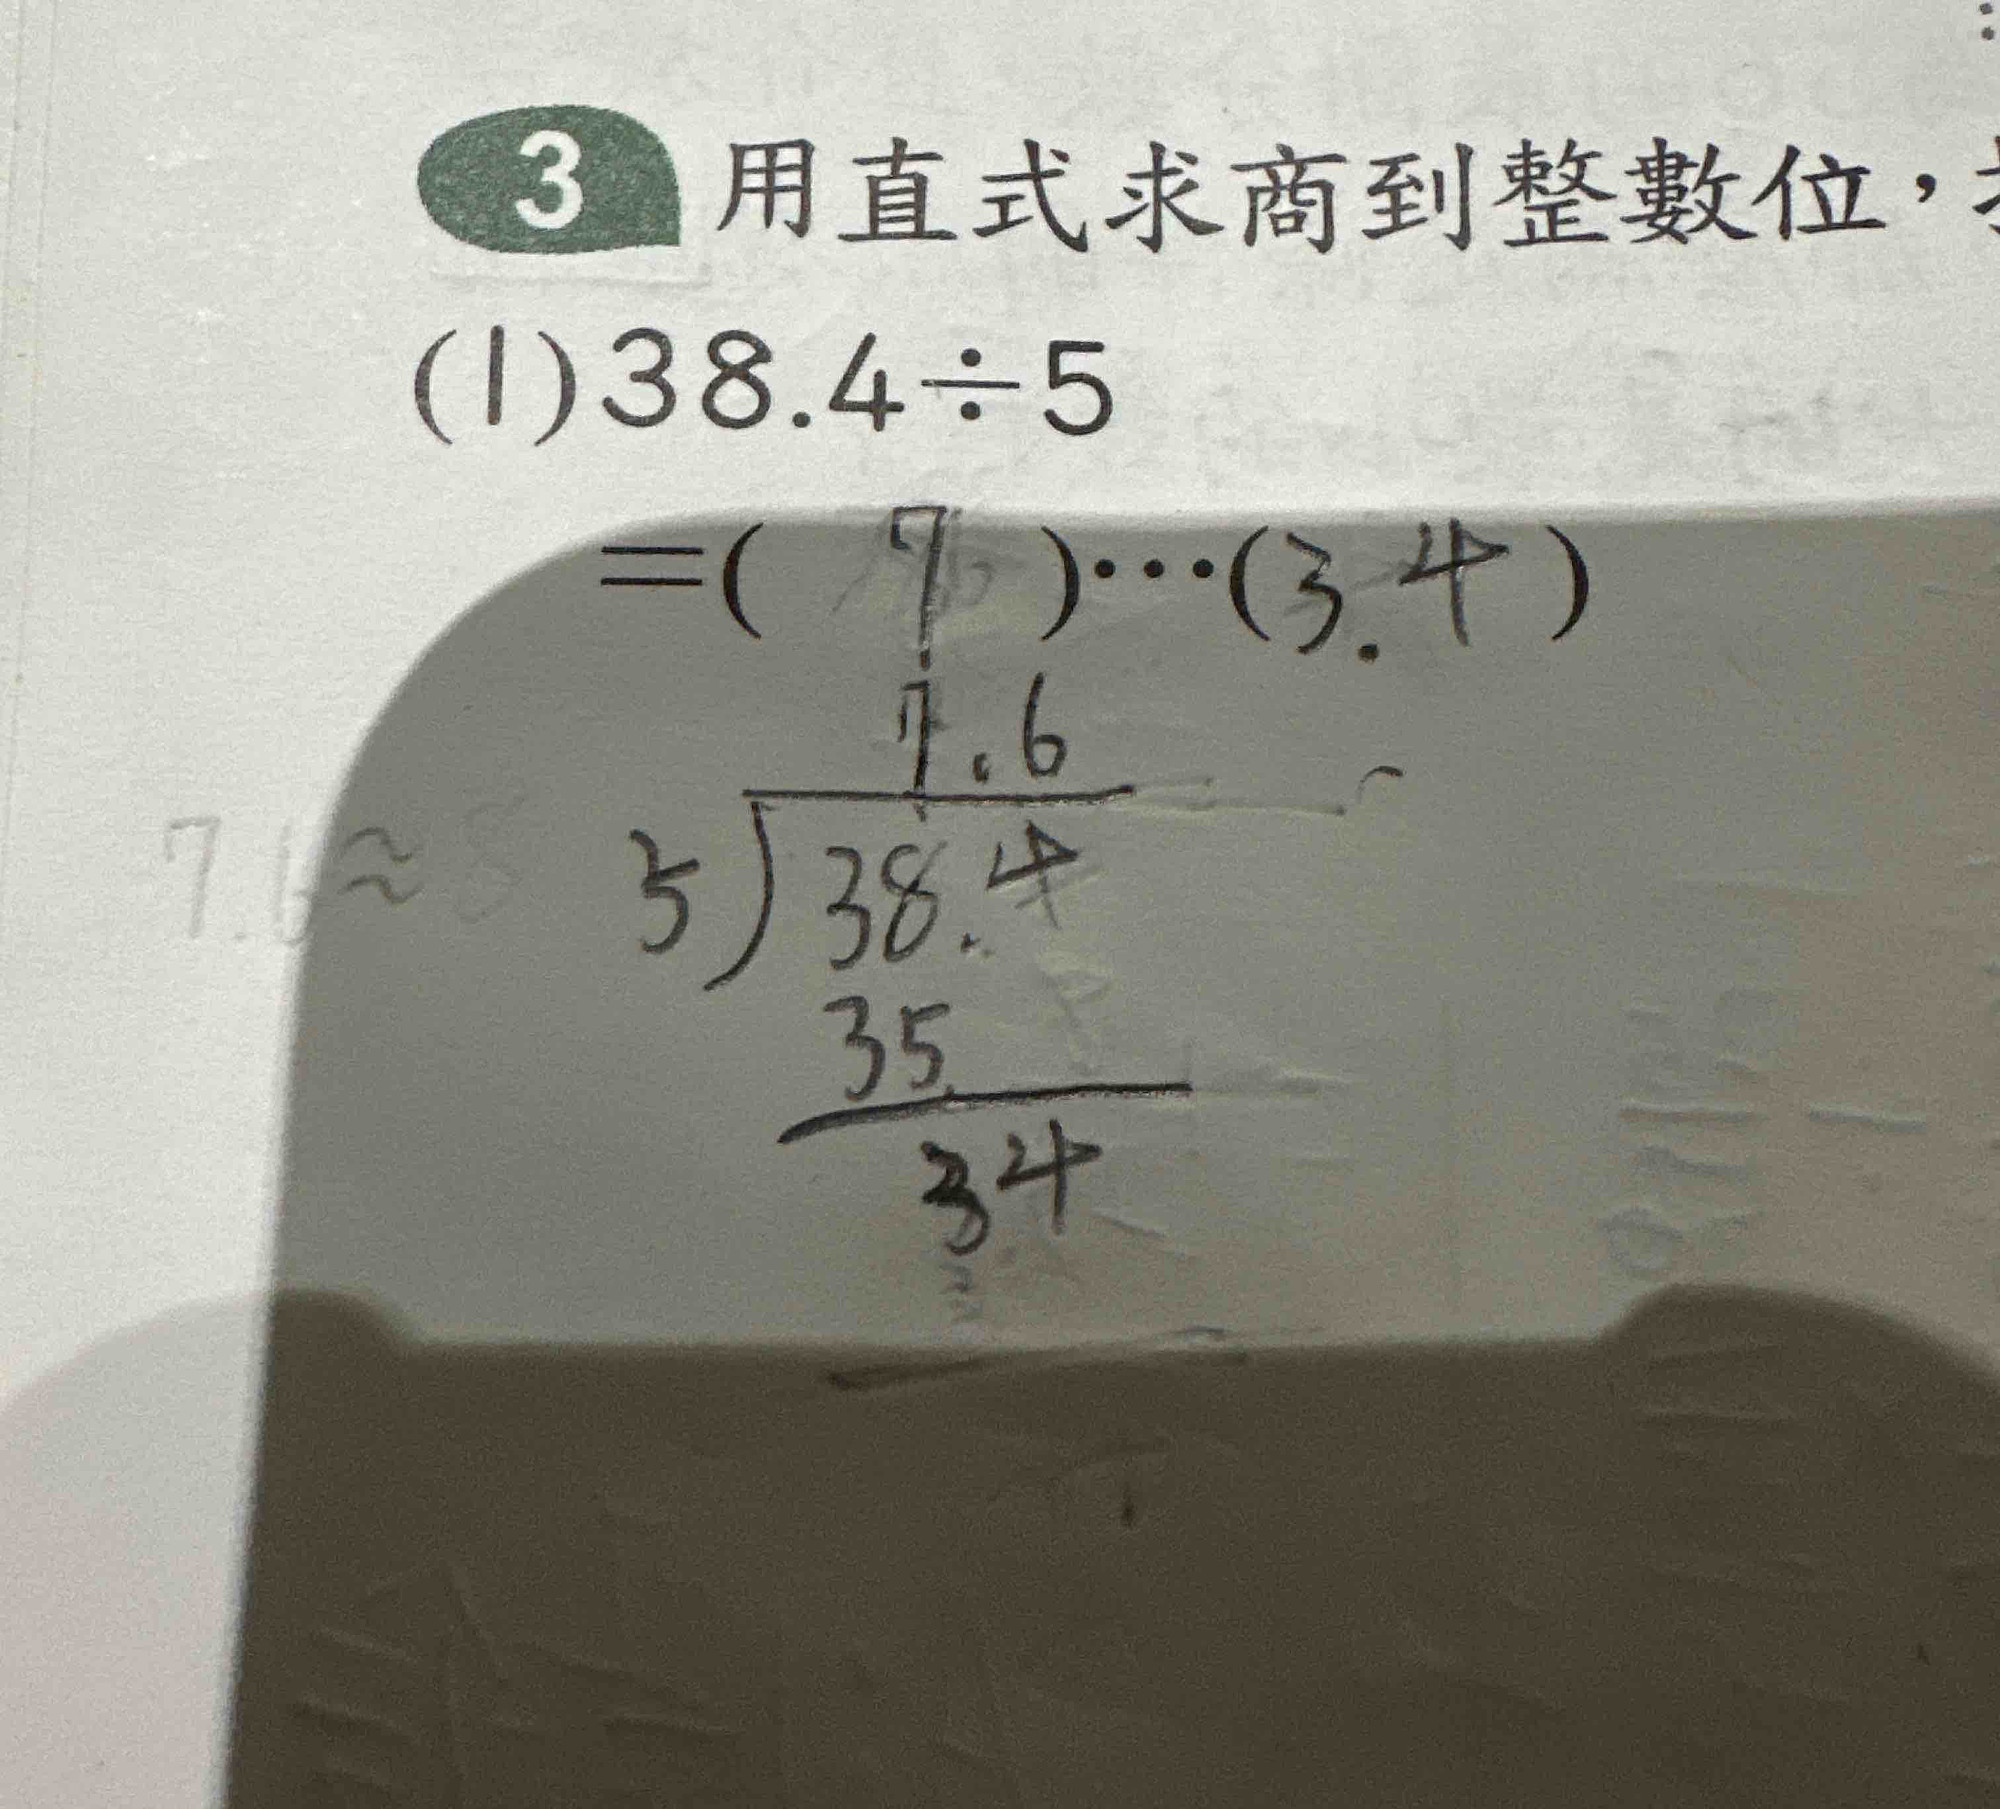 3 用直式求商到整數位，
(1)38.4÷5
=( 7 )…(3.4)
7.6
7.6≈8
5)38.4
35
34